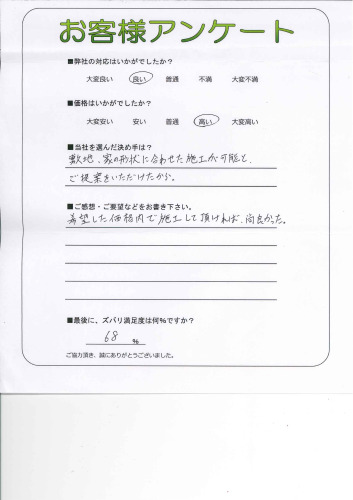 お客様アンケート
■弊社の対応はいかがでしたか?
大変良い 良い 普通 不満 大変不満
■価格はいかがでしたか?
大変安い 安い 普通 高い 大変高い
■当社を選んだ決め手は?
敷地、家の形状に合わせた施工が可能と、
ご提案をいただけたから。
■ご感想・ご要望などをお書き下さい。
希望した価格内で施工して頂ければ、尚良かった。
■最後に、ズバリ満足度は何%ですか?
68 %
ご協力頂き、誠にありがとうございました。